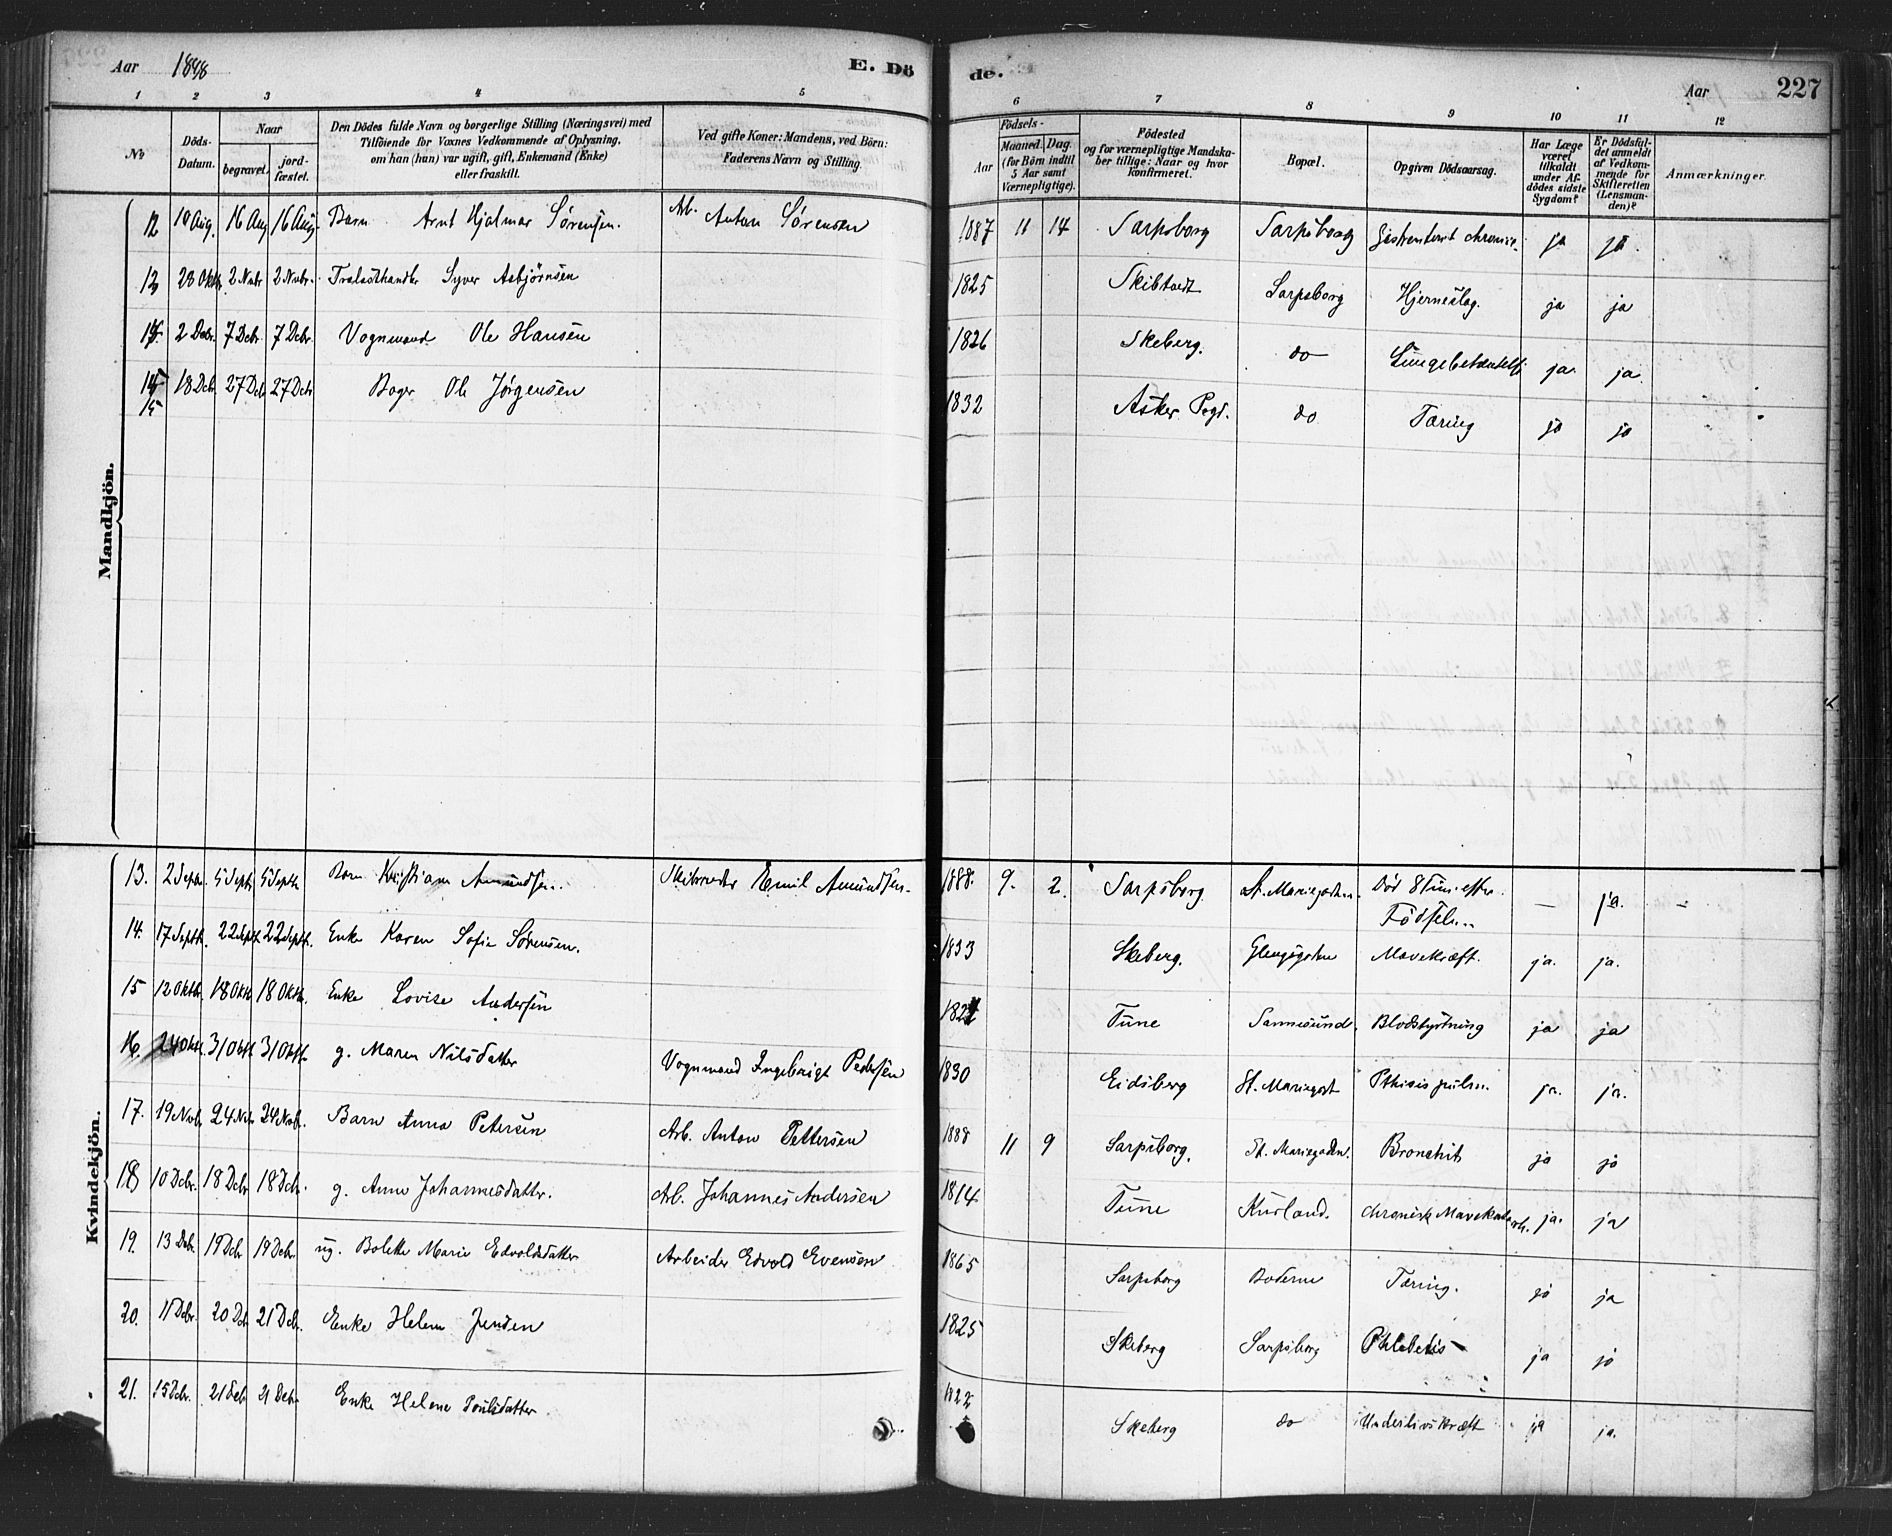 Aar 1888 E. Dö de. Aar 227
1 2 3 4 5 6 7 8 9 10 11 12
No
Döds-Datum.
Naar
begravet.
jord-fæstet.
Den Dödes fulde Navn og borgerlige Stilling (Næringsvei) med
Tilföiende for Voxnes Vedkommende af Oplysning,
om han (hun) var ugift, gift, Enkemand (Enke)
eller fraskilt.
Ved gifte Koner: Mandens, ved Börn:
Faderens Navn og Stilling.
Födsels-
Aar
Maaned. Dag.
(for Börn indtil
5 Aar samt
Værnepligtige).
Födested
og for værnepligtige Mandska-
ber tillige: Naar og hvor
konfirmeret.
Bopæl.
Opgiven Dödsaarsag.
Har Læge
været
tilkaldt
under Af-
dödes sidste
Sygdom?
Er Dödsfal-
det anmeldt
af Vedkom-
mende for
Skifteretten
(Lensman-
den)?
Anmærkninger.
Mandkjön.
12 10 Aug. 16 Aug 16 Aug. Barn Arnt Hjalmar Sørensen. Arb. Anton Sørensen 1887 11 14 Sarpsborg Sarpsborg ja ja.
13 2 Nvbr 2 Nvbr. Syver Asbjørnsen 1825 Skibtvedt Sarpsborg Hjerneslag. ja ja
2 Decbr. 7 Decbr. 7 Decbr. Vognmand Ole Hansen 1826 Skeberg. do Lungebetændelse ja. ja.
15 18 Decbr. 27 Decbr 27 Decbr Bager Ole Jørgensen 1832 Asker Prgd. do Tæring ja ja
Kvindekjön.
13. 2 Septbr. 5 Septb 5 Septb Barn Kristiane Amundsen. Emil Amundsen 1888. 9. 2. Sarpsborg St. Mariegaden. Død 8 Tim. efter Fødselen. — ja. –
14. 17 Septb. 22 Septb. 22 Septb. Enke Karen Sofie Sørensen. 1833 Skeberg. Glengsgaden Mavekræft. ja. ja.
15 12 Oktb. 18 Oktb. 18 Oktb. Enke Lovise Andersen Tune Sannesund. Blodstyrtning ja ja
16. 24 Oktb. 31 Oktb. 31 Oktb. g. Maren Nilsdatter Vognmand Ingebrigt Pedersen 1830 Eidsberg St. Mariegad Pthisis pulm. ja. ja.
17. 19 Novb. 24 Nvb. 24 Novb. Barn Anna Petersen Arb. Anton Pettersen 1888 11 9 Sarpsborg. St. Mariegaden. Bronchit ja ja
18 10 Decbr. 18 Decbr. 18 Decbr. g. Anne Johannesdatter. Arb. Johannes Andersen 1814 Tune Kurland. chronisk Mavekatarrh. ja. ja
19. 13 Decbr. 19 Decbr. 19 Decbr. ug. Bolette Marie Edvoldsdatter Arbeider Edvold Evensen 1865 Sarpsborg Boderne Tæring. ja ja
20. 11 Decbr. 20 Dcb 21 Dcb. Enke Helene Jensen 1825 Skeberg Sarpsborg ja ja
21. 15 Dcbr. 21 Dcb 21 Dcbr Enke Helene Poulsdatter. 1822 Skeberg do Underlivskræft ja ja.